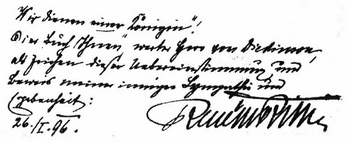 Wir dienen einer Königin!
Dies Buch Ihnen, werter Herr von
als Zeichen dieser Uebereinstimmung und
Beweis meiner innigen Sympathie und
Ergebenheit:
26./I. 96.